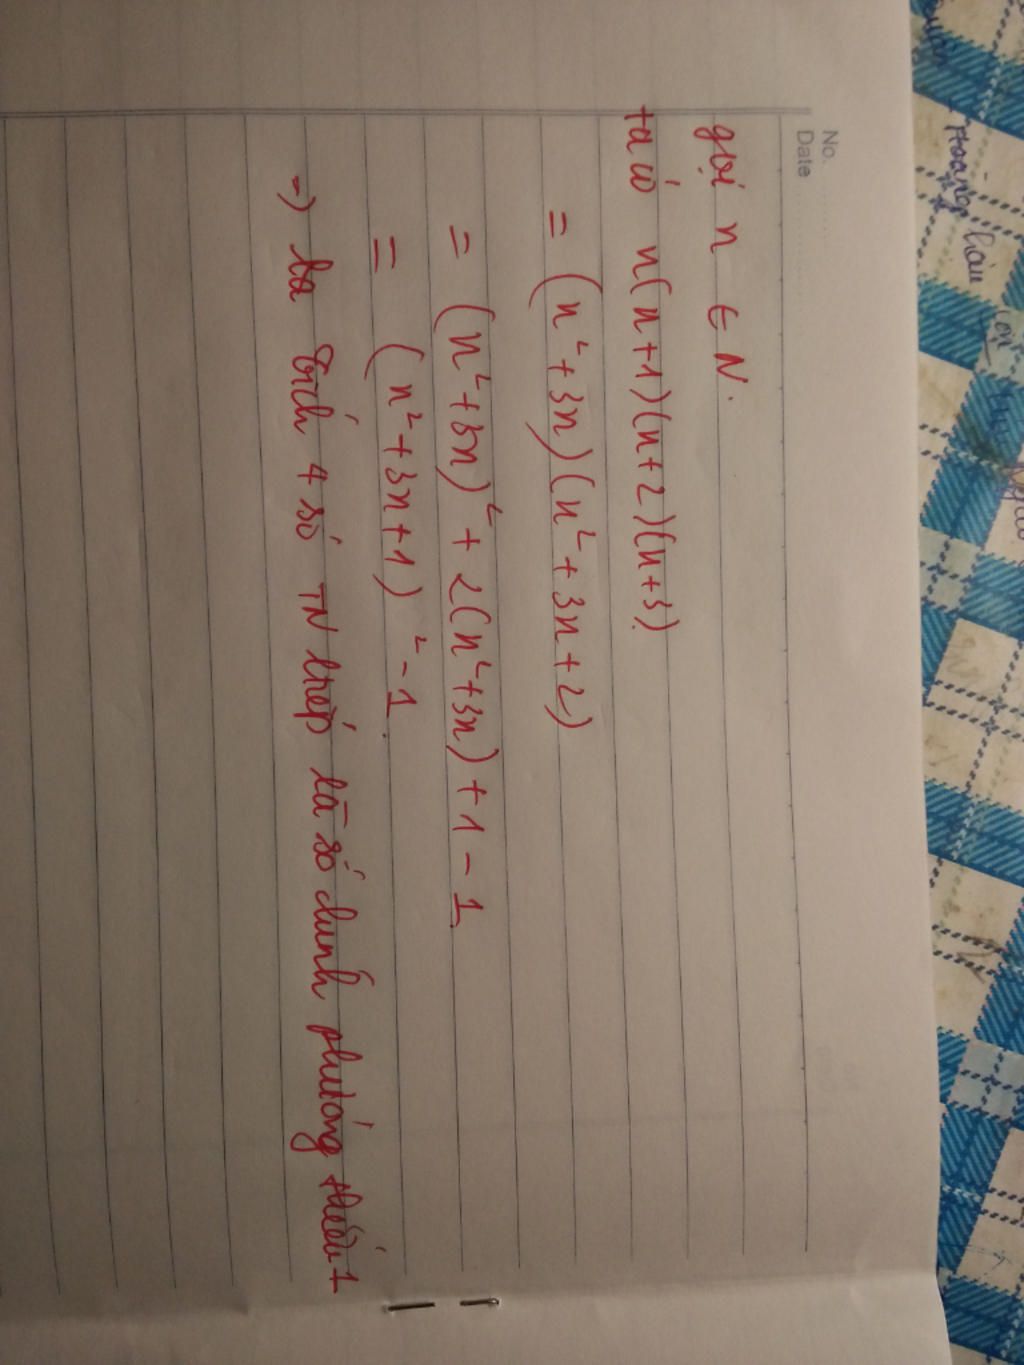 No.
Date
gọi n ∈ N.
ta có n(n+1)(n+2)(n+3).
= (n²+3n)(n²+3n+2)
= (n²+3n)²+2(n²+3n)+1-1.
= (n²+3n+1)²-1.
-) Tích 4 số TN là số chính phương thiếu 1
Hoàng